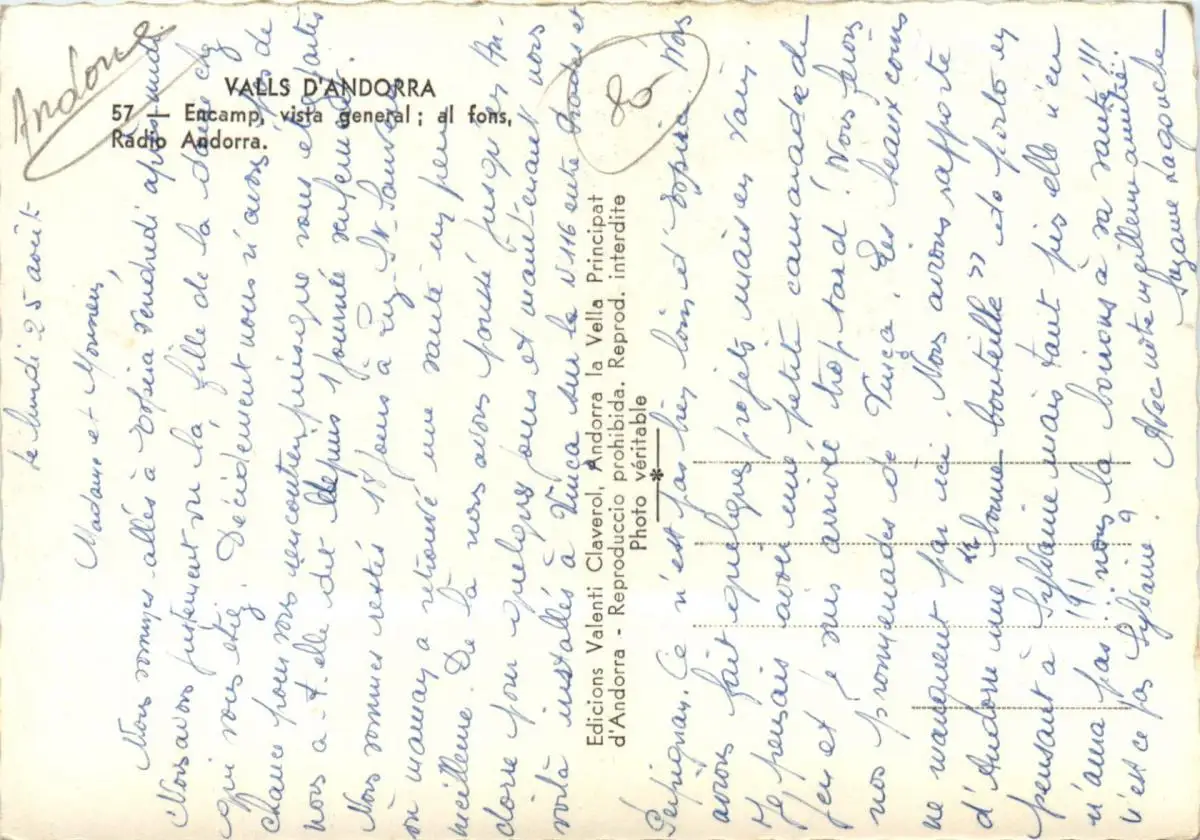 Andorre
VALLS D'ANDORRA
57 — Encamp, vista general ; al fons,
Radio Andorra.
80
Edicions Valenti Claverol, Andorra la Vella Principat
d'Andorra - Reproduccio prohibida. Reprod. interdite
Photo véritable
Le lundi 25 août
Madame et Monsieur
Nous sommes allés à Vendredi après-midi.
Nous avons justement vu la fille de la dame chez
qui vous étiez. Décidément nous n'avons pas de
chance pour vous rencontrer puisque vous étiez partis
nous a-t-elle dit depuis 1 journée
Nous sommes restés 18 jours à Luz-St-Sauveur
où maman a retrouvé une santé un peu
meilleure. De là nous avons poussé jusqu'en An-
dorre pour quelques jours et maintenant nous
voilà installés à Vinça sur la N 116 entre Prades et
Perpignan. Ce n'est pas bien loin d' Nous
avons fait quelques projets mais en vain.
Je pensais avoir une petite camarade de
jeu et je suis arrivée trop tard ! Nous ferons
nos promenades de Vinça. Les beaux coins
ne manquent par ici. Nous avons rapporté
d'Andorre une « bonne bouteille » de porto en
pensant à Sylvaine mais tant pis elle n'en
n'aura pas !!! nous la boirons à sa santé !!!
n'est ce pas Sylvaine ? Avec notre meilleure amitié.
Suzanne Lagouche